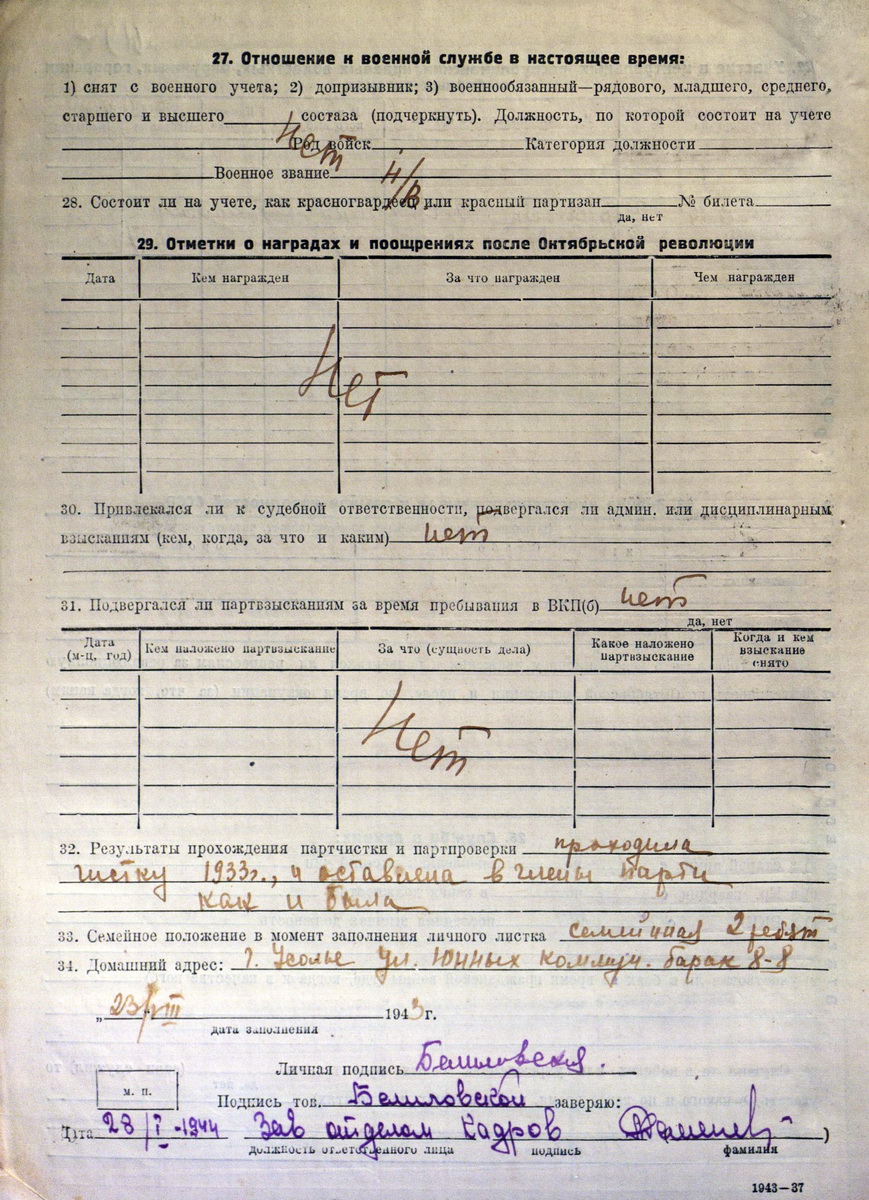 27. Отношение к военной службе в настоящее время:
1) снят с военного учета; 2) допризывник; 3) военнообязанный—рядового, младшего, среднего,
старшего и высшего состаза (подчеркнуть). Должность, по которой состоит на учете
Нет Род войск Категория должности
Военное звание Н/В
28. Состоит ли на учете, как красногвардеец или красный партизан № билета
да, нет
29. Отметки о наградах и поощрениях после Октябрьской революции
Дата Кем награжден За что награжден Чем награжден
Нет
30. Привлекался ли к судебной ответственности, подвергался ли админ. или дисциплинарным
взысканиям (кем, когда, за что и каким) нет
31. Подвергался ли партвзысканиям за время пребывания в ВКП(б) нет
да, нет
Дата (м-ц, год) Кем наложено партвзыскание За что (сущность дела) Какое наложено партвзыскание Когда и кем взыскание снято
Нет
32. Результаты прохождения партчистки и партпроверки проходила
чистку 1933г., и оставлена в члены парти
как и была
33. Семейное положение в момент заполнения личного листка семейная 2 ребят
34. Домашний адрес: г. Усолье ул. Юнных коммун. барак 8-8
„23/VIII 1943г.
дата заполнения
Личная подпись
м. п.
Подпись тов. заверяю:
Дата 28/I-1944 Зав отделом кадров )
должность ответственного лица подпись фамилия
1943—37